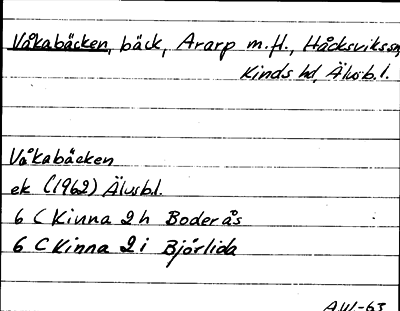 Våkabäcken, bäck, Ararp m.fl., Håcksvikssn,
Kinds hd, Älvsb.l.
Våkabäcken
ek (1962) Älvsb.l.
6 C Kinna 2 h Boderås
6 C Kinna 2 i Björlida
AW-63